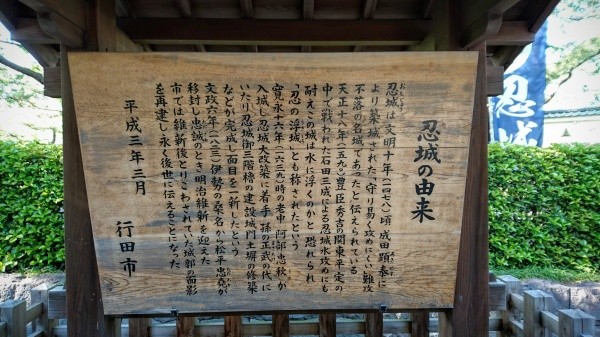 忍城の由来
忍城は文明十年(一四七八)頃成田顕泰に
より築城された「守り易く攻めにくい難攻
不落の名城」であったと伝えられている
天正十八年(一五九〇)豊臣秀吉の関東平定の
中で戦われた石田三成による忍城水攻めにも
耐え「この城は水に浮くのか」と恐れられ
「忍の浮城」とも称されたという
寛永十六年(一六三九)時の老中阿部忠秋が
入城し忍城大改築に着手孫の正武の代に
いたり忍城御三階櫓の建設城門土塀の修築
などが完成し面目を一新したという
文政六年(一八二三)伊勢の桑名から松平忠堯が
移封し忠誠のとき明治維新を迎えた
市では維新後とりこわされていた城郭の面影
を再建し永く後世に伝えることになった
平成三年三月
行田市
忍城